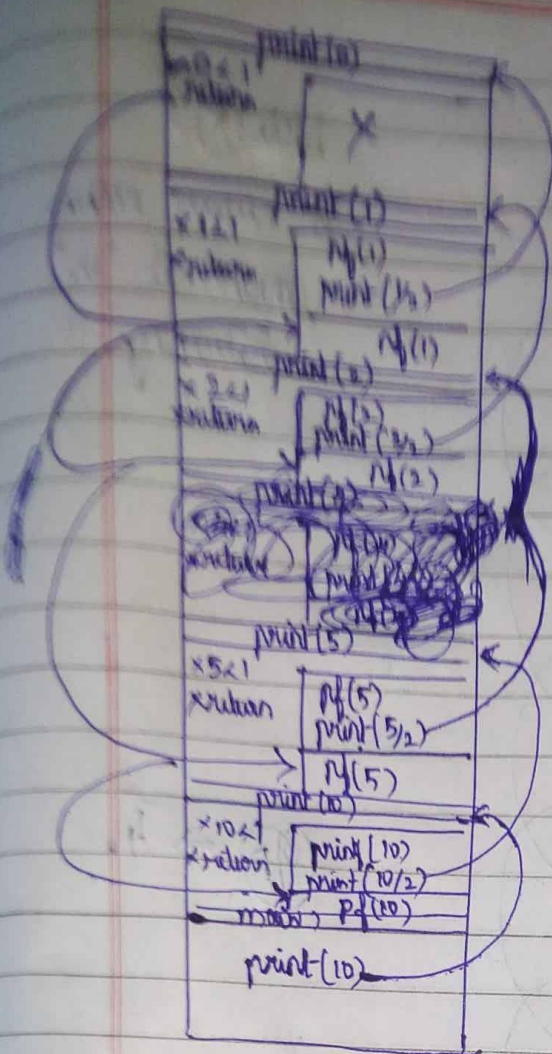 print(0)
× 0<1
return
×
print(1)
× 1<1
×return
pf(1)
print(1/2)
pf(1)
print(2)
× 2<1
×return
pf(2)
print(2/2)
pf(2)
print(5)
× 5<1
×return
pf(5)
print(5/2)
pf(5)
print(10)
× 10<1
×return
print(10)
print(10/2)
pf(10)
main
print(10)